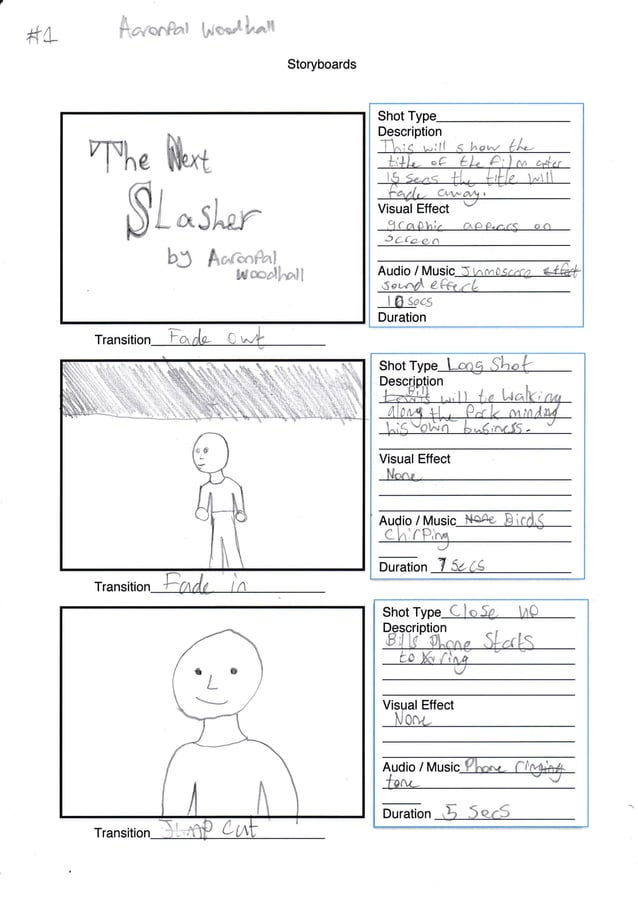 #1 AaronPal Woodhall
Storyboards
The Next
Slasher
by AaronPal
Woodhall
Transition Fade out
Shot Type
Description
This will show the
title of the film after
15 secs the title will
fade away.
Visual Effect
graphic appears on
screen
Audio / Music Jumpscare effect
sound effect
10 secs
Duration
Transition Fade in
Shot Type Long Shot
Description
Bill
Lewis will be walking
along the Park minding
his own business.
Visual Effect
None
Audio / Music None Birds
Chirping
Duration 7 Secs
Transition Jump Cut
Shot Type Close up
Description
Bills Phone Starts
to ring
Visual Effect
None
Audio / Music Phone ringing
tone
Duration 5 Secs